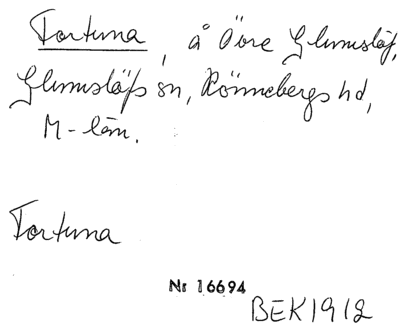 Fortuna, å Övre Glumslöf,
Glumslöfs sn, Rönnebergs hd,
M-län.
Fortuna
Nr 16694
BEK1912